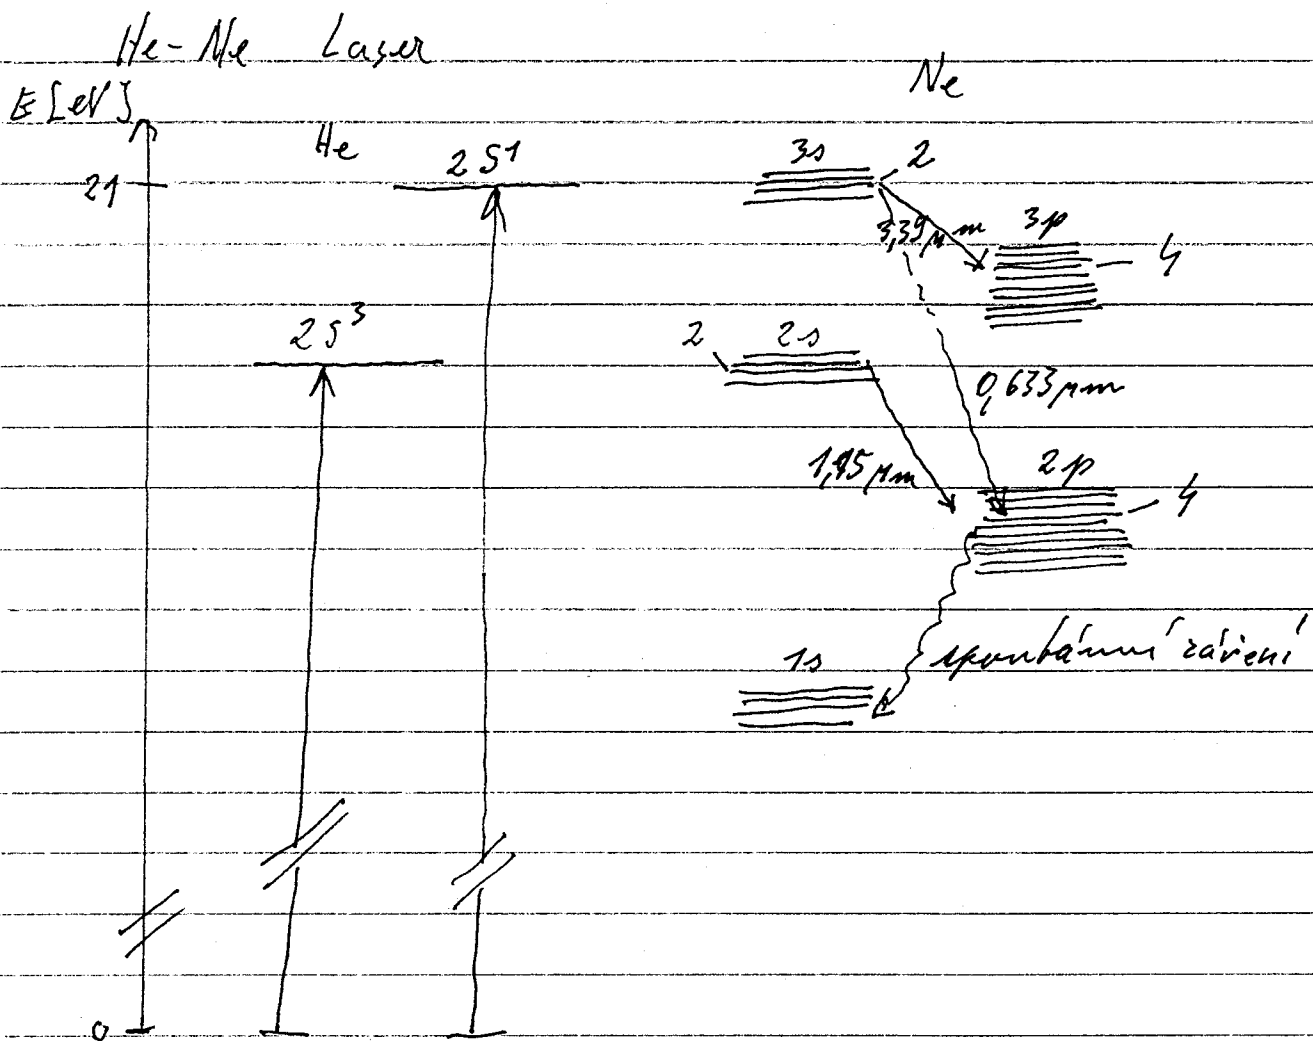 He-Ne Laser
Ne
E [eV]
He
21
2S¹
3s
2
3,39 μm
3p
4
2S³
2
2s
0,633 μm
1,15 μm
2p
4
spontánní záření
1s
0